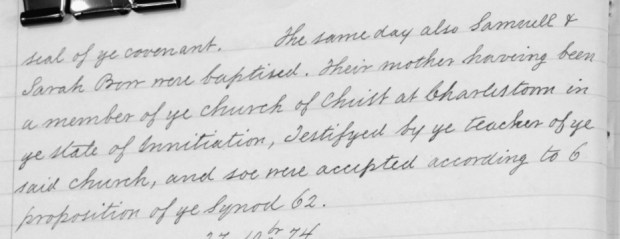 seal of ye covenant. The same day also Samuell &
Sarah Bow were baptised. Their mother haveing been
a member of ye church of Christ at Charlestown in
ye state of Innitiation, Testifyed by ye teacher of ye
said church, and soe were accepted according to 6
proposition of ye Synod 62.
74